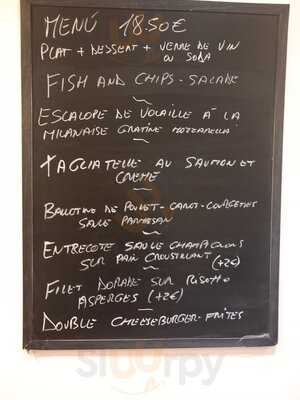 MENÚ 18.50€
PLAT + DESSERT + VERRE DE VIN
OU SODA
FISH AND CHIPS - SALADE
ESCALOPE DE VOLAILLE À LA
MILANAISE GRATINE MOZZARELLA
TAGLIATELLE AU SAUMON ET
CREME
BALLOTINE DE POULET - CAROT - COURGETTES
SAUCE PARMESAN
ENTRECOTE SAUCE CHAMPIGNONS
SUR PAIN CROUSTILLANT (+2€)
FILET DORADE SUR RISOTTO
ASPERGES (+2€)
DOUBLE CHEESEBURGER - FRITES
sluurpy